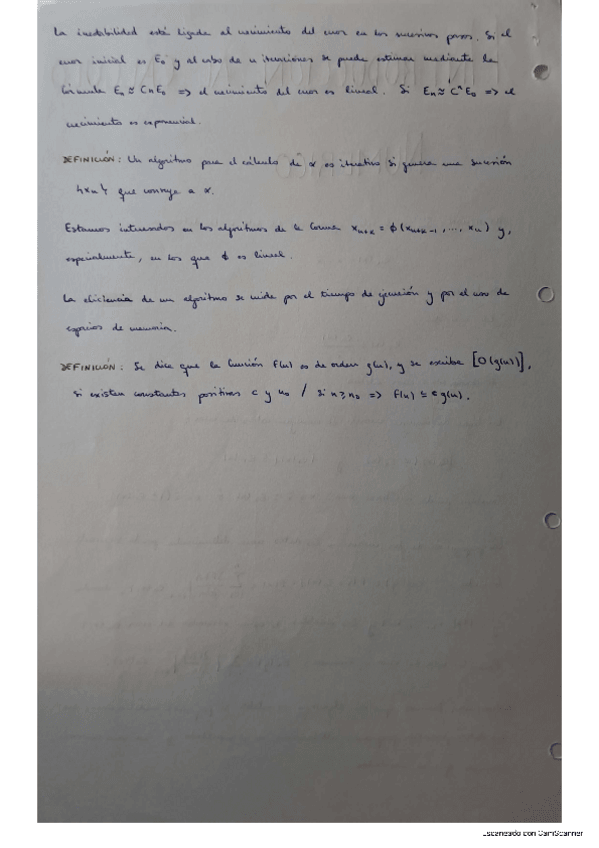 La inestabilidad está ligada al crecimiento del error en los sucesivos pasos. Si el
error inicial es E₀ y al cabo de n iteraciones se puede estimar mediante la
fórmula Eₙ ≈ CnE₀ => el crecimiento del error es lineal. Si Eₙ ≈ CⁿE₀ => el
crecimiento es exponencial.
DEFINICIÓN: Un algoritmo para el cálculo de α es iterativo si genera una sucesión
{xₙ} que converja a α.
Estamos interesados en los algoritmos de la forma xₙ₊ₖ = ϕ(xₙ₊ₖ₋₁, ..., xₙ) y,
especialmente, en los que ϕ es lineal.
La eficiencia de un algoritmo se mide por el tiempo de ejecución y por el uso de
espacios de memoria.
DEFINICIÓN: Se dice que la función f(n) es de orden g(n), y se escribe [O(g(n))],
si existen constantes positivas c y n₀ / si n ≥ n₀ => f(n) ≤ c g(n).
Escaneado con CamScanner